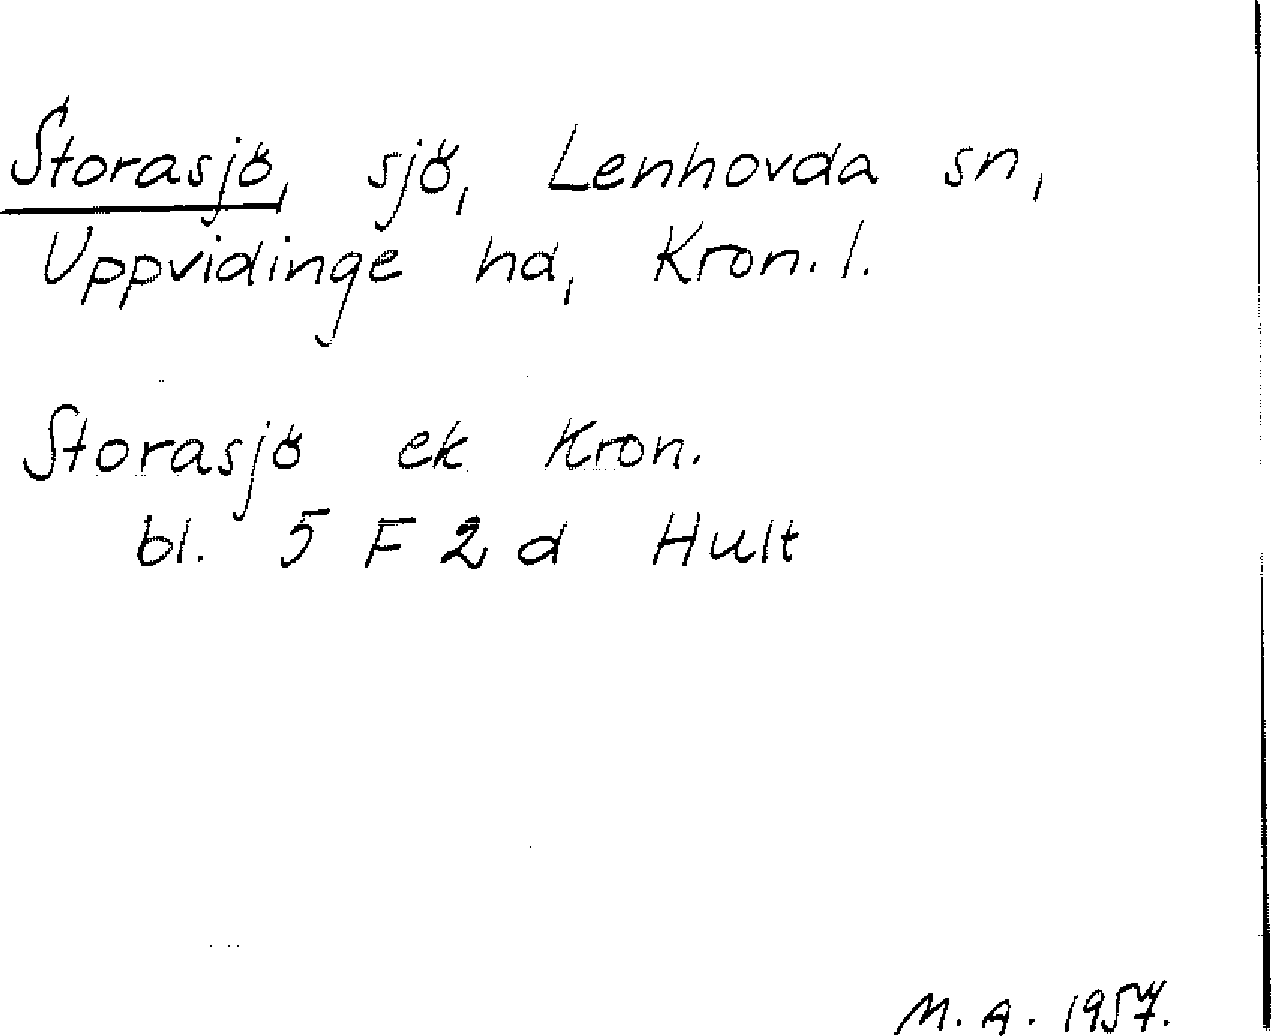 Storasjö, sjö, Lenhovda sn,
Uppvidinge hd, Kron. l.
Storasjö ek Kron.
bl. 5 F 2 d Hult
M. A. 1957.